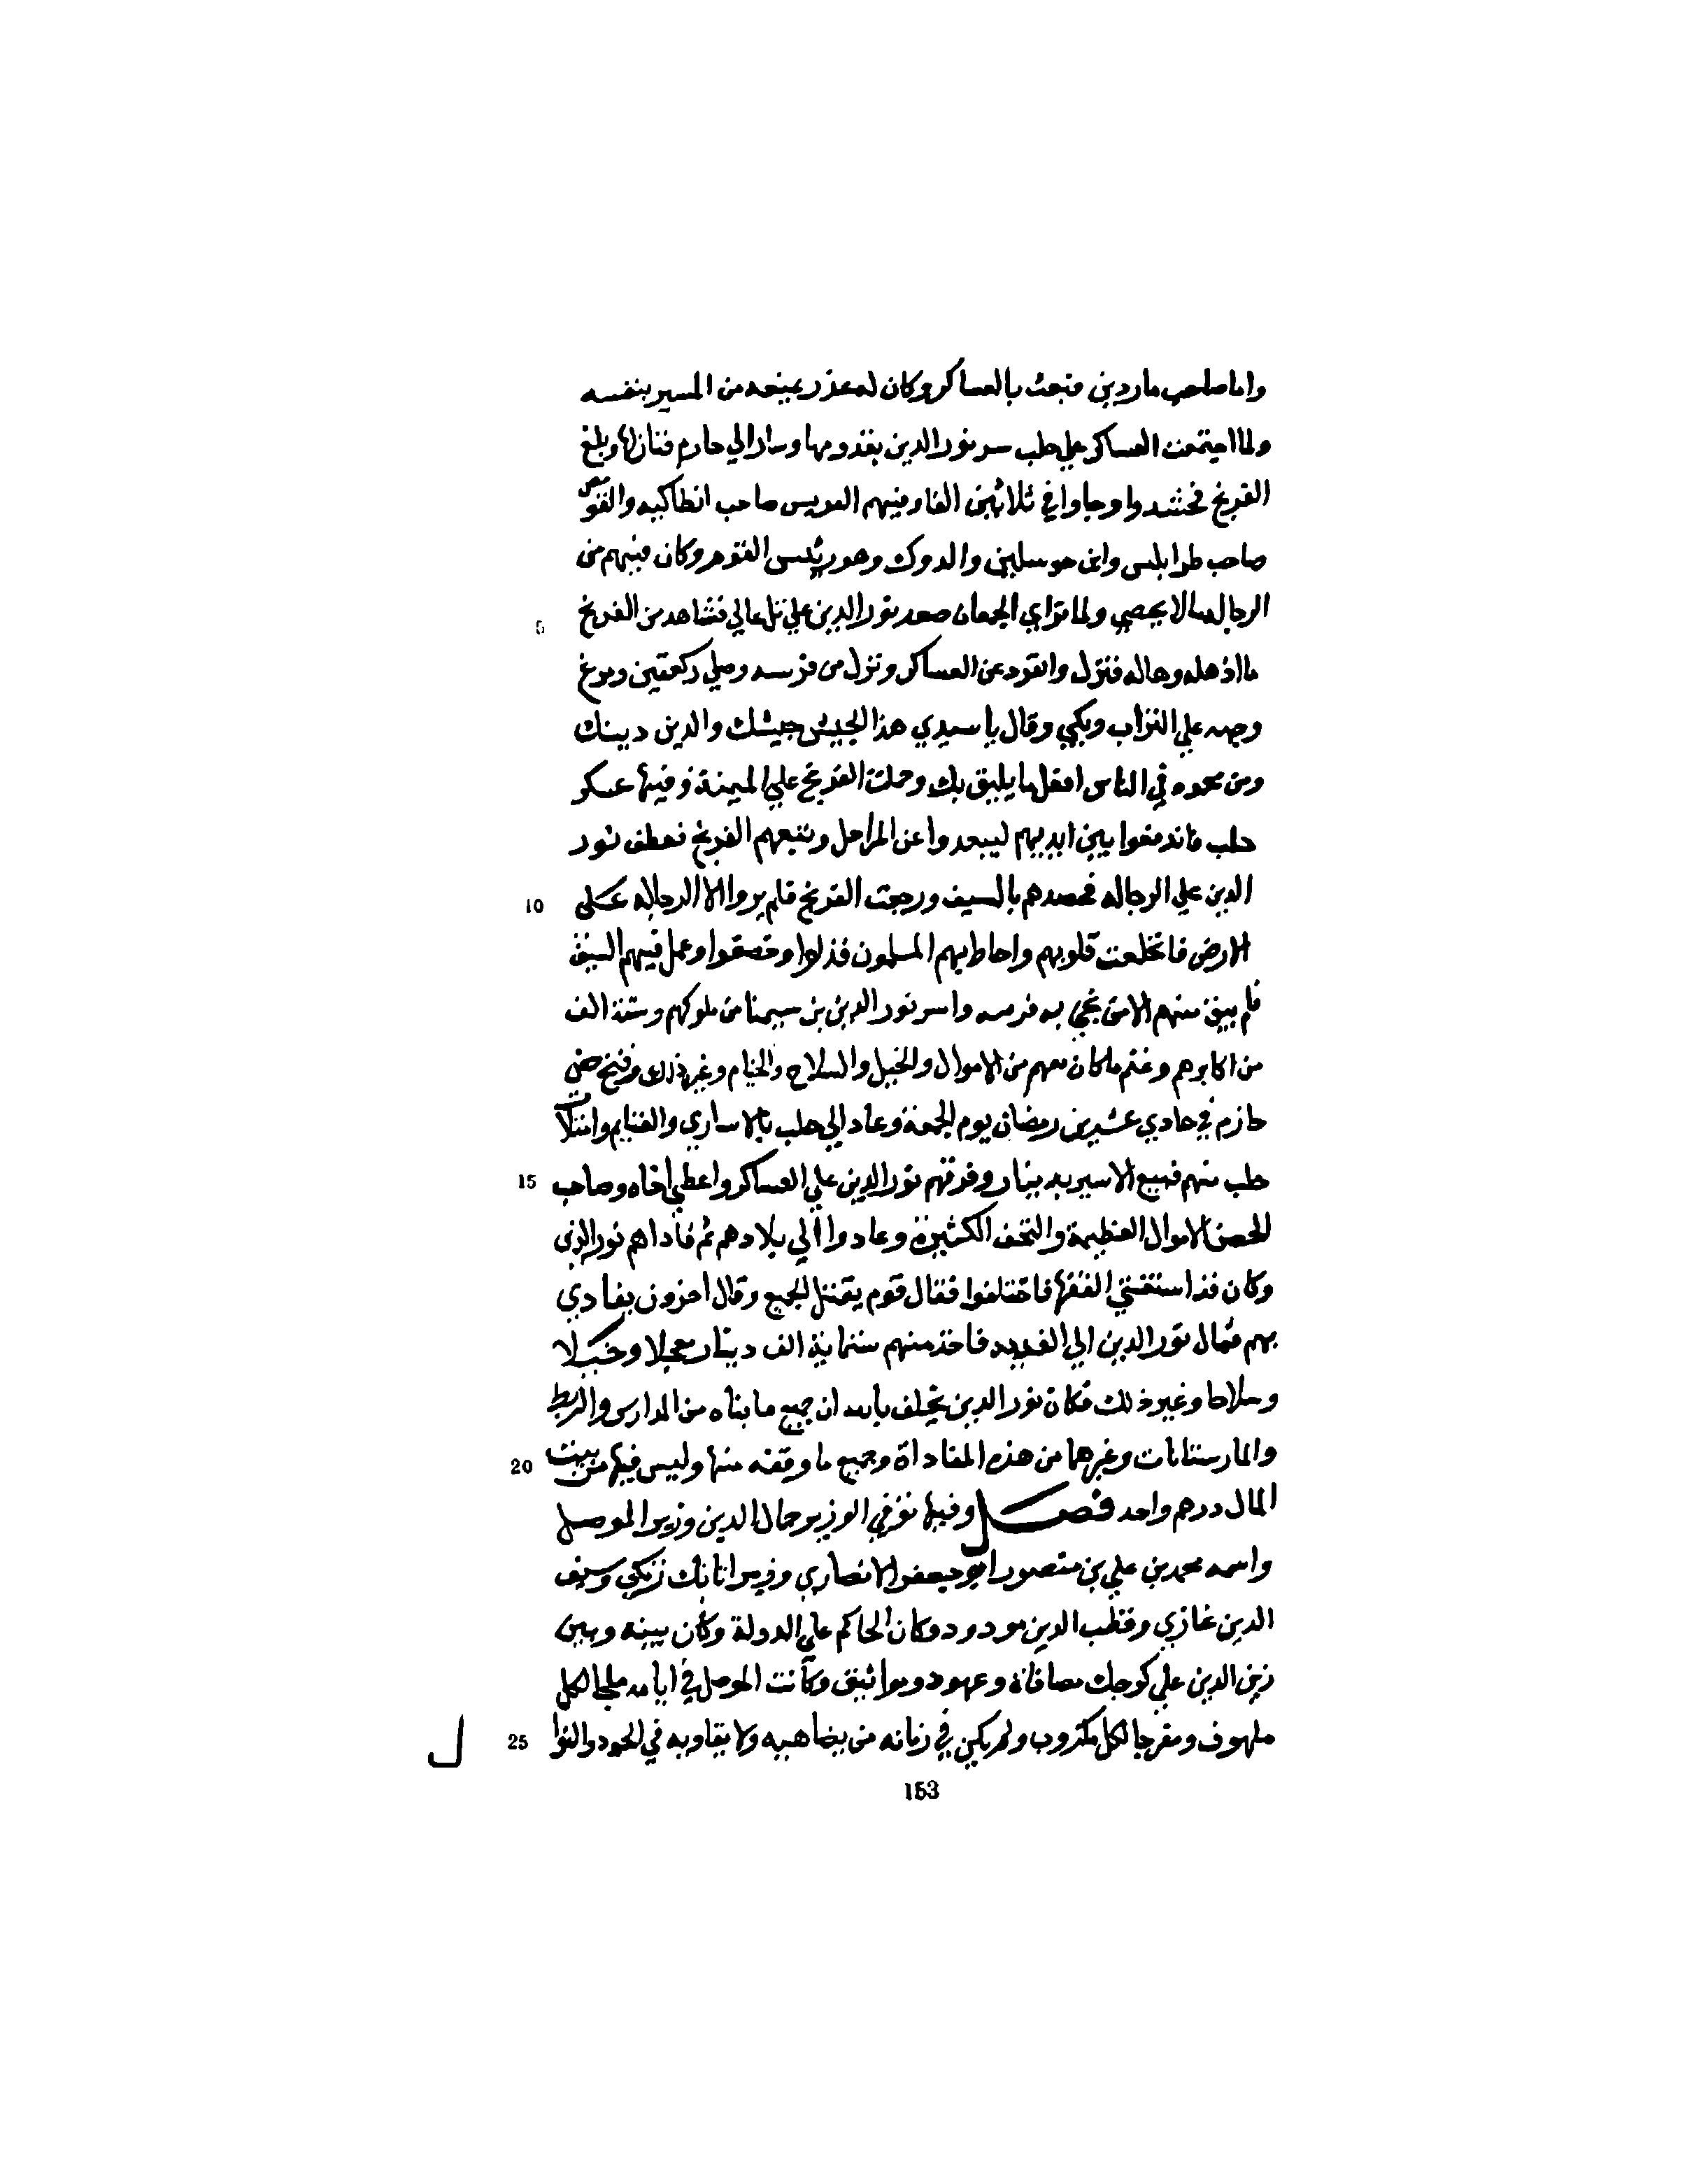 واما صاحب ماردين فبعث بالعساكر وكان له عذر يمنعه من المسير بنفسه
ولما اجتمعت العساكر علي حلب سر نور الدين بقدومها وسار الي حارم فنازلها وبلغ
الفرنج فحشدوا وجاوا في ثلاثين الفا وفيهم البرنس صاحب انطاكيه والقومص
صاحب طرابلس وابن جوسلين والدوك وهو رئيس القوم وكان فيهم من
الرجاله مالا يحصي ولما تراي الجمعان صعد نور الدين علي تل عالي فشاهد من الفرنج 5
ما اذهله وهاله فنزل وانفرد عن العساكر ونزل من فرسه وصلي ركعتين ومرغ
وجهه علي التراب وبكي وقال يا سيدي هذا الجيش جيشك والدين دينك
ومن محمود في الناس افعل ما يليق بك وحملت الفرنج علي الميمنة وفيها عسكر
حلب فاندفعوا بين ايديهم ليبعدوا عن الراجل وتبعهم الفرنج فعطف نور
الدين علي الرجاله فحصدهم بالسيف ورجعت الفرنج فلم يروا الا الرجاله على 10
الارض فانخلعت قلوبهم واحاط بهم المسلمون فذلوا وخضعوا وعمل فيهم السيف
فلم يبق منهم الا من نجي به فرسه واسر نور الدين بن سيمنا من ملوكهم وستة الف
من اكابرهم وغنم ما كان معهم من الاموال والخيل والسلاح والخيام وغير ذلك وفتح حصن
حارم في حادي عشرين رمضان يوم الجمعة وعاد الي حلب بالاساري والغنايم وامتلات
حلب منهم فبيع الاسير بدينار وفرقهم نور الدين علي العساكر واعطي اخاه وصاحب 15
الحصن الاموال العظيمة والتحف الكثيرة وعادوا الي بلادهم ثم فاداهم نور الدين
وكان قد استفتي الفقها فاختلفوا فقال قوم يقتل الجميع وقال اخرون يفادي
بهم فمال نور الدين الي الفديه فاخذ منهم ستماية الف دينار معجلا وخيلا
وسلاحا وغير ذلك فكان نور الدين يحلف بالله ان جميع ما بناه من المدارس والربط
والمارستانات وغيرهما من هذه المفاداة وجميع ما وقفه منها وليس فيها من بيت 20
المال درهم واحد فصل وفيها توفي الوزير جمال الدين وزير الموصل
واسمه محمد بن علي بن منصور ابو جعفر الانصاري وزير اتابك زنكي وسيف
الدين غازي وقطب الدين مودود وكان الحاكم علي الدولة وكان بينه وبين
زين الدين علي كوجك مصافاة وعهود ومواثيق وكانت الموصل في ايامه ملجا لكل
ملهوف ومفرجا لكل مكروب ولم يكن في زمانه من يضاهيه ولا يقاربه في الجود والنوا 25
ل
153